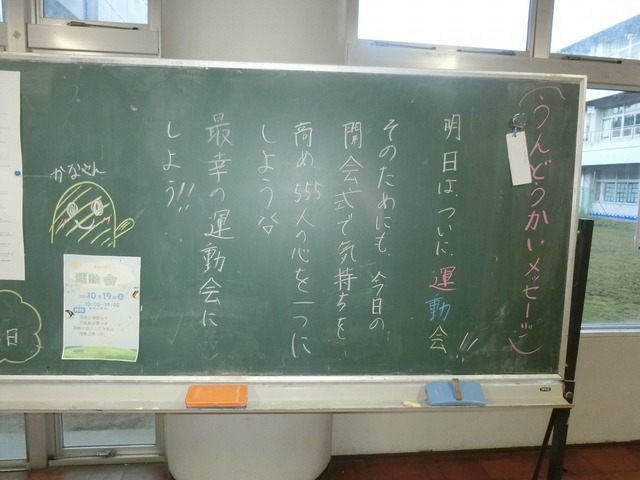 うんどうかいメッセージ
明日は、ついに運動会!!
そのためにも、今日の
開会式で気持ちを
高め、555人の心を一つに
しような
最幸の運動会に
しよう!!
かなさん
運動会
10月19日
10:00~14:00
日